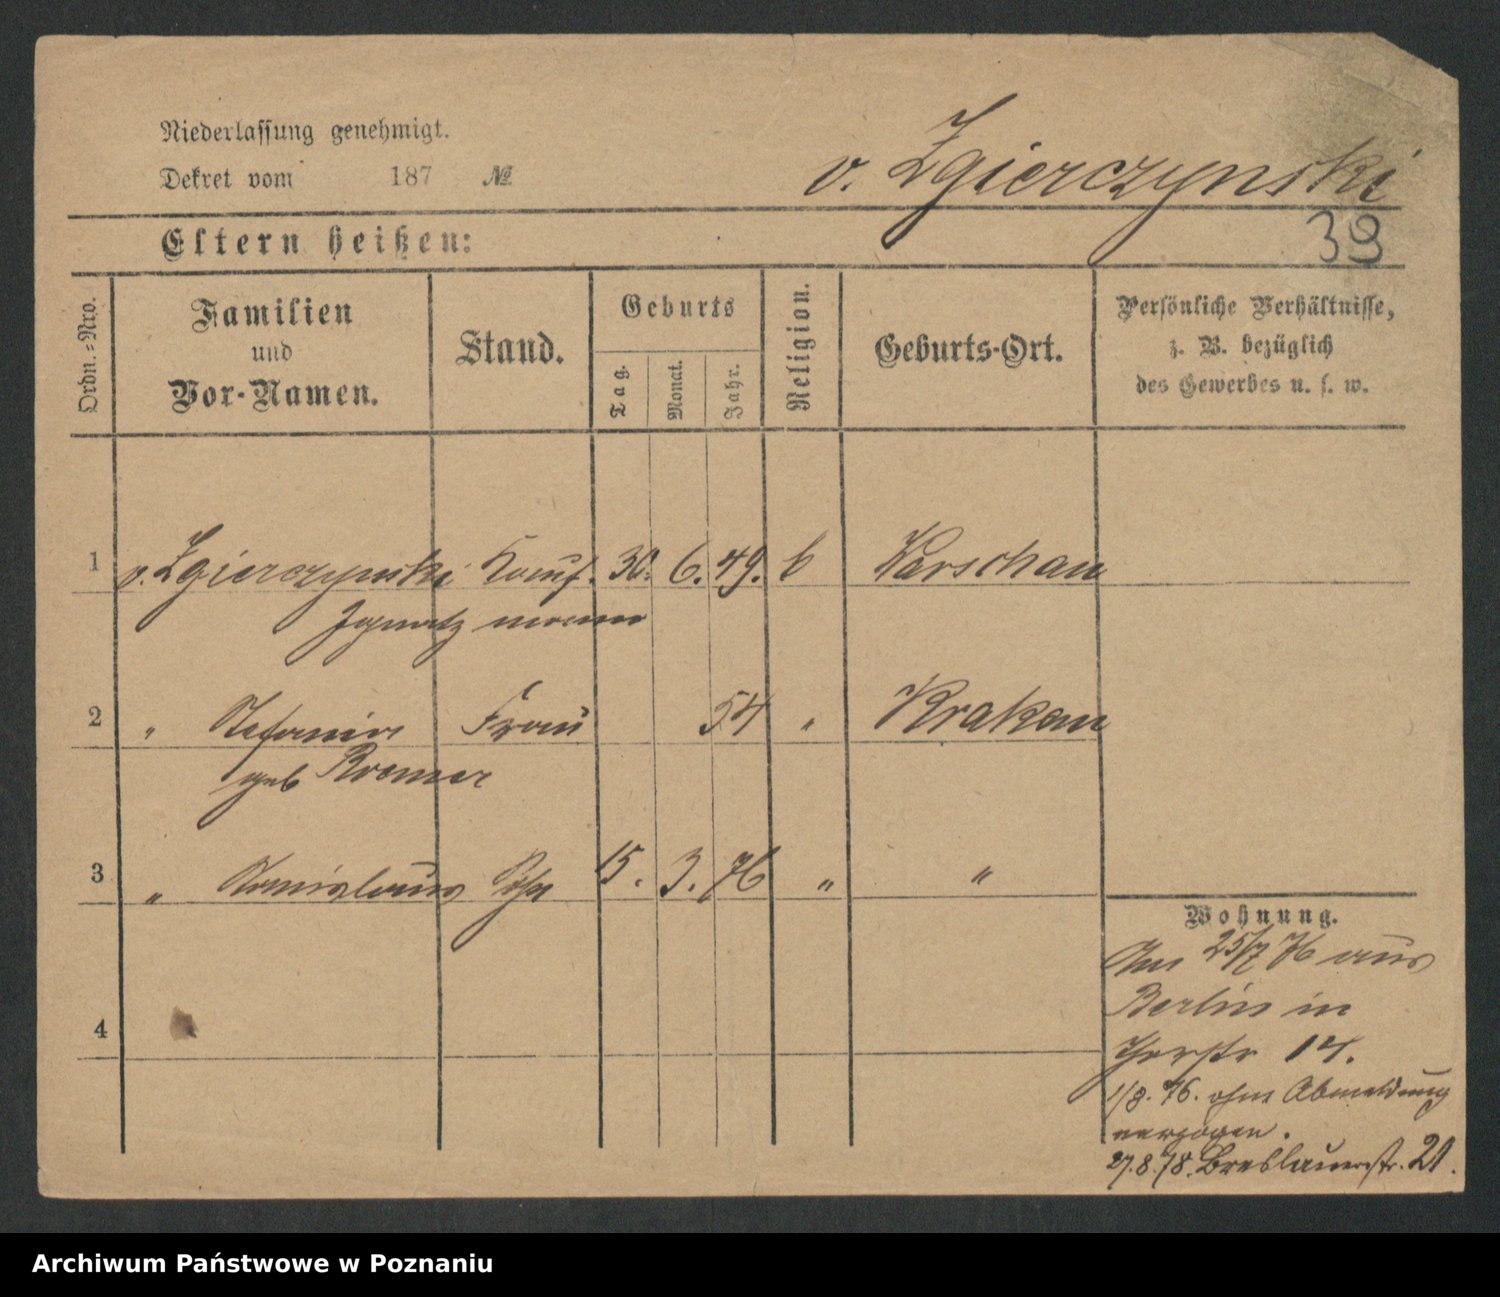 Niederlassung genehmigt.
Dekret vom 187 №
v. Zgierczynski
39
Eltern heißen:
Ordn.-Nro.
Familien
und
Vor-Namen.
Stand.
Geburts
Tag.
Monat.
Jahr.
Religion.
Geburts-Ort.
Persönliche Verhältnisse,
z. B. bezüglich
des Gewerbes u. s. w.
1 v. Zgierczynski Kauf- 30. 6. 49. k Warschau
Ignatz mann
2 " Stefania Frau 54 " Krakau
geb Kremer
3 " Stanislaus Sohn 15. 3. 76 " "
4
Wohnung.
Am 25/7 76 aus
Berlin in
14.
1/8. 76. ohne Abmeldung
verzogen.
27.8.78. Breslauerstr. 21.
Archiwum Państwowe w Poznaniu